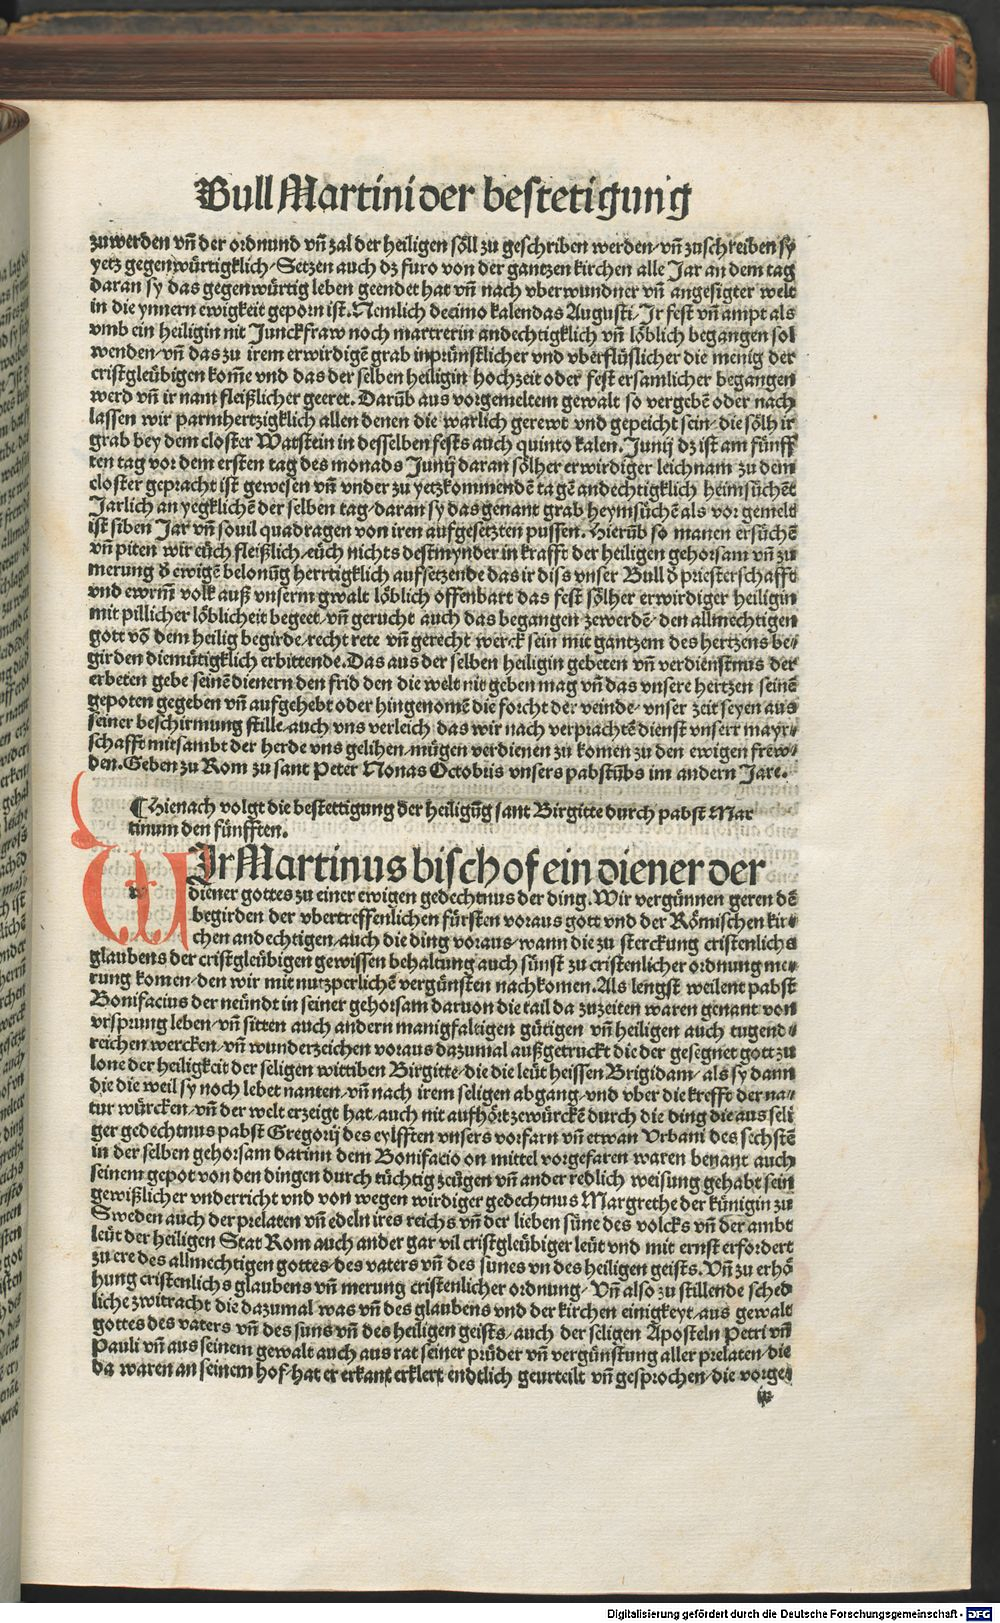 Bull Martini der bestetigung
zuwerden vn̄ der ordnund vn̄ zal der heiligen söll zu geschriben werden/vn̄ zuschreiben sy
yetz gegenwürtigklich/Setzen auch dz furo von der gantzen kirchen alle Jar an dem tag
daran sy das gegenwürtig leben geendet hat vn̄ nach vberwundner vn̄ angesigter welt
in die ynnern ewigkeit geporn ist. Nemlich decimo kalendas Augusti/Jr fest vn̄ ampt als
vmb ein heiligin nit Junckfraw noch martrerin andechtigklich vn̄ löblich begangen sol
wenden/vn̄ das zu irem erwirdigē grab inprünstlicher vnd vberflüslicher die menig der
cristgleübigen kom̄e vnd das der selben heiligin hochzeit oder fest ersamlicher begangen
werd vn̄ ir nam fleißlicher geeret. Darūb aus vorgemeltem gewalt so vergebē oder nach
lassen wir parmhertzigklich allen denen die warlich gerewt vnd gepeicht sein/die sölh ir
grab bey dem closter Watstein in desselben fests auch quinto kalen. Junij dz ist am fünff
ten tag vor dem ersten tag des monads Junij daran sölher erwirdiger leichnam zu dem
closter gepracht ist gewesen vn̄ vnder zu yetzkommendē tagē andechtigklich heimsüchēt
Jarlich an yegklichēn der selben tag/daran sy das genant grab heymsüchēt als vor gemelt
ist siben Jar vn̄ souil quadragen von iren aufgesetzten pussen. Hierūb so manen ersüchē
vn̄ piten wir eüch fleißlich/eüch nichts destmynder in krafft der heiligen gehorsam vn̄ zu
merung d̄ ewigē belonūg herrtigklich aufsetzende das ir diss vnser Bull d̄ priesterschafft
vnd ewrm̄ volk auß vnserm gwalt löblich offenbart das fest sölher erwirdiger heiligin
mit pillicher löblicheit begeet/vn̄ gerucht auch das begangen zewerdē/den allmechtigen
gott vō dem heilig begirde/recht rete vn̄ gerecht werck sein mit gantzem des hertzens be⸗
girden diemütigklich erbittende. Das aus der selben heiligin gebeten vn̄ verdienstnus der
erbeten gebe seinē dienern den frid den die welt nit geben mag vn̄ das vnsere hertzen seinē
gepoten gegeben vn̄ aufgehebt oder hingenomē die forcht der veinde/vnser zeit seyen aus
seiner beschirmung stille/auch vns verleich das wir nach verprachtē dienst vnserr mayr⸗
schafft mitsambt der herde vns gelihen/mügen verdienen zu komen zu den ewigen frew⸗
den. Geben zu Rom zu sant Peter Nonas Octobris vnsers pabstūbs im andern Jare.
¶ Hienach volgt die bestettigung der heiligūg sant Birgitte durch pabst Mar
tinum den fünfften.
WJr Martinus bischof ein diener der
diener gottes zu einer ewigen gedechtnus der ding. Wir vergünnen geren dē
begirden der vbertreffenlichen fürsten voraus gott vnd der Römischen kir⸗
chen andechtigen/auch die ding voraus/wann die zu sterckung cristenlichs
glaubens der cristgleübigen gewissen behaltung auch sünst zu cristenlicher ordnung me⸗
rung komen/den wir mit nutzperlichē vergünsten nachkomen. Als lengst weilent pabst
Bonifacius der neündt in seiner gehorsam daruon die tail da zuzeiten waren genant von
vrsprung leben/vn̄ sitten auch andern manigfaltigen gütigen vn̄ heiligen auch tugend⸗
reichen wercken/vn̄ wunderzeichen voraus dazumal außgetruckt die der gesegnet gott zu
lone der heiligkeit der seligen wittiben Birgitte/die die leüt heissen Brigidam/als sy dann
die die weil sy noch lebet nanten/vn̄ nach irem seligen abgang/vnd vber die krefft der na⸗
tur würcken/vn̄ der welt erzeigt hat/auch nit aufhört zewürckē durch die ding die aus seli
ger gedechtnus pabst Gregorij des eylfften vnsers vorfarn vn̄ etwan Vrbani des sechstē
in der selben gehorsam darinn dem Bonifacio on mittel vorgefaren waren benant auch
seinem gepot von den dingen durch tüchtig zeügen vn̄ ander redlich weisung gehabt sein
gewißlicher vnderricht vnd von wegen wirdiger gedechtnus Margrethe der künigin zu
Sweden auch der prelaten vn̄ edeln ires reichs vn̄ der lieben süne des volcks vn̄ der ambt
leüt der heiligen Stat Rom auch ander gar vil cristgleübiger leüt vnd mit ernst erfordert
zu ere des allmechtigen gottes/des vaters vn̄ des sunes vn des heiligen geists. Vn̄ zu erhö
hung cristenlichs glaubens vn̄ merung cristenlicher ordnung/Vn̄ also zu stillende sched
liche zwitracht die dazumal was vn̄ des glaubens vnd der kirchen einigkeyt/aus gewalt
gottes des vaters vn̄ des suns vn̄ des heiligen geists/auch der seligen Aposteln Petri vn̄
Pauli vn̄ aus seinem gewalt auch aus rat seiner prüder vn̄ vergünstung aller prelaten/die
da waren an seinem hof/hat er erkant erklert endtlich geurteilt vn̄ gesprochen/die vorge⸗
Digitalisierung gefördert durch die Deutsche Forschungsgemeinschaft - DFG